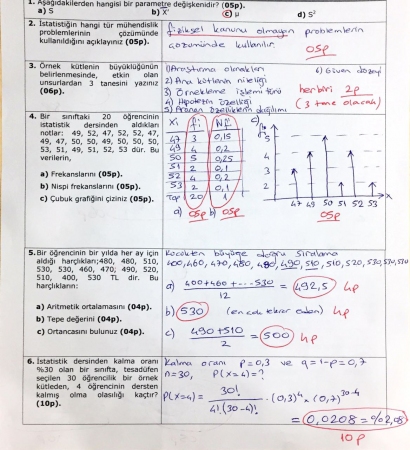 1. Aşağıdakilerden hangisi bir parametre değişkenidir? (05p).
a) S b) X̅ c) μ d) S²
2. İstatistiğin hangi tür mühendislik problemlerinin çözümünde kullanıldığını açıklayınız (05p).
fiziksel kanunu olmayan problemlerin
çözümünde kullanılır.
05p
3. Örnek kütlenin büyüklüğünün belirlenmesinde, etkin olan unsurlardan 3 tanesini yazınız (06p).
1) Araştırma olanakları 6) Güven düzeyi
2) Ana kütlenin niteliği
3) Örnekleme işlemi türü
4) Hipotezin özelliği
5) Aranan özelliklerin dağılımı
her biri 2p
(3 tane olacak)
4. Bir sınıftaki 20 öğrencinin istatistik dersinden aldıkları notlar: 49, 52, 47, 52, 52, 47, 49, 47, 50, 50, 49, 50, 50, 50, 53, 51, 49, 51, 52, 53 dür. Bu verilerin,
a) Frekanslarını (05p).
b) Nispi frekanslarını (05p).
c) Çubuk grafiğini çiziniz (05p).
Xi fi Nf
47 3 0,15
49 4 0,2
50 5 0,25
51 2 0,1
52 4 0,2
53 2 0,1
Top 20 1
a) 05p b) 05p
c) fi
5
4
3
2
47 49 50 51 52 53 X
05p
5. Bir öğrencinin bir yılda her ay için aldığı harçlıkları;480, 480, 510, 530, 530, 460, 470, 490, 520, 510, 400, 530 TL dir. Bu harçlıkların:
a) Aritmetik ortalamasını (04p).
b) Tepe değerini (04p).
c) Ortancasını bulunuz (04p).
Küçükten büyüğe doğru sıralama
400,460,470,480,480,490,510,510,520,530,530,530
a) 400+460+...530 / 12 = 492,5 4p
b) 530 (en çok tekrar eden) 4p
c) 490+510 / 2 = 500 4p
6. İstatistik dersinden kalma oranı %30 olan bir sınıfta, tesadüfen seçilen 30 öğrencilik bir örnek kütleden, 4 öğrencinin dersten kalmış olma olasılığı kaçtır? (10p).
Kalma oranı p=0,3 ve q=1-p=0,7
n=30, P(X=4)=?
P(X=4) = 30! / 4!(30-4)! . (0,3)⁴ . (0,7)³⁰⁻⁴
= 0,0208 = %2,08
10p